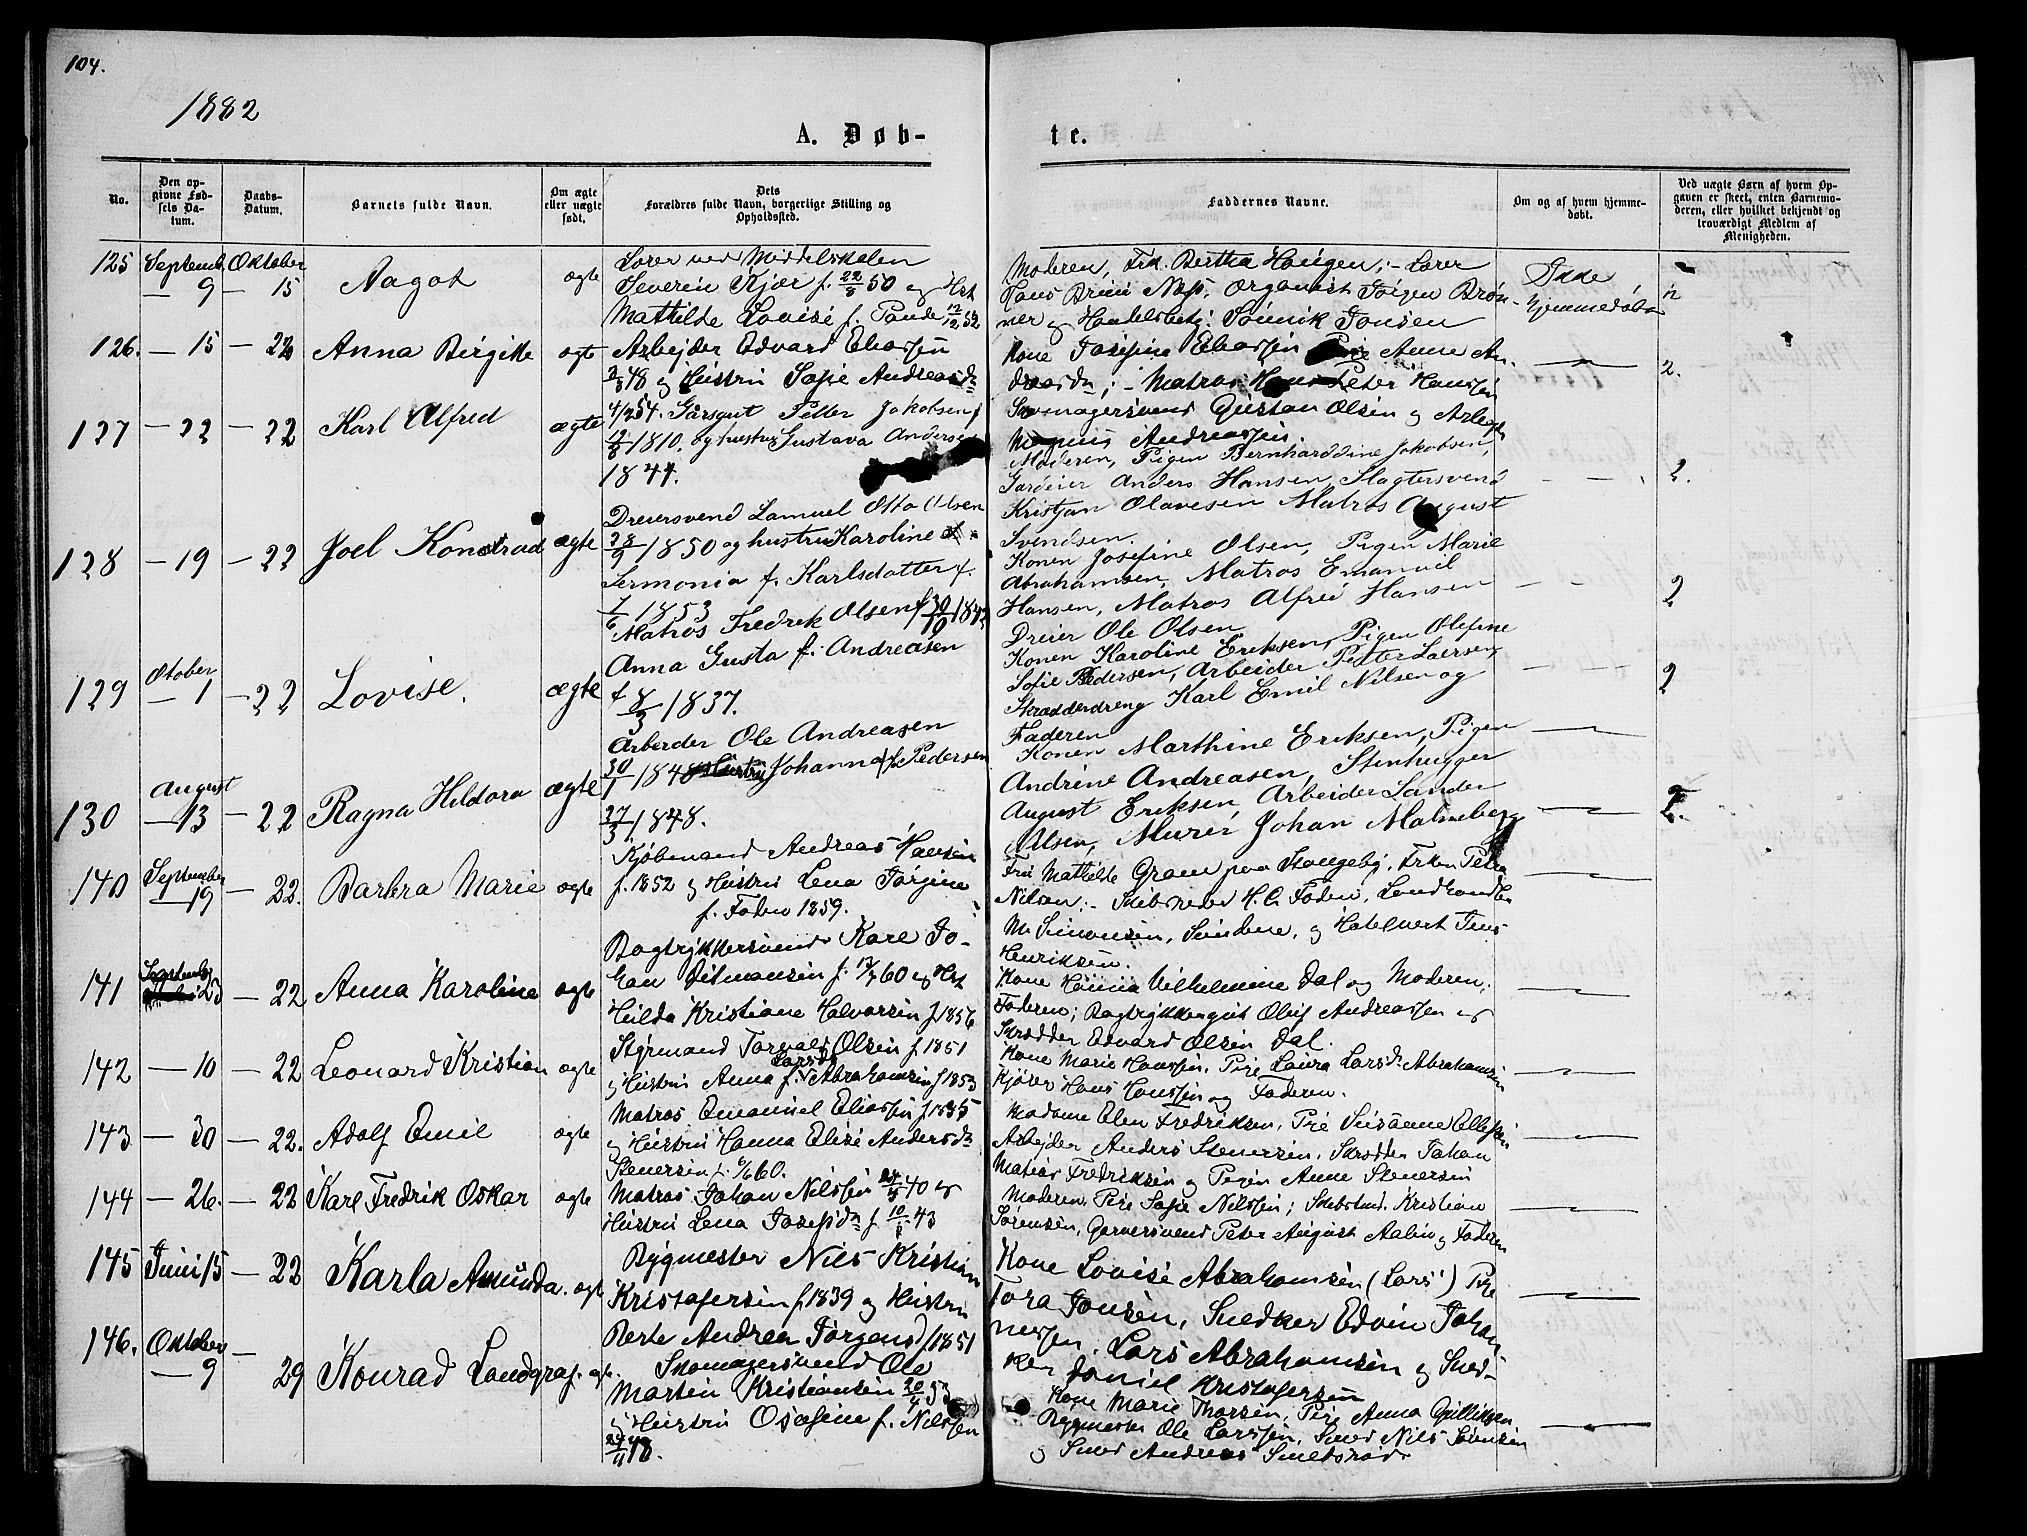 104.
1882
A. Døb-
te.
No.
Den op-
givne Fød-
sels Da-
tum.
Daabs-
Datum.
Barnets fulde Navn.
Om ægte
eller uægte
født.
Dets
Forældres fulde Navn, borgerlige Stilling og
Opholdssted.
Faddernes Navne.
Om og af hvem hjemme-
døbt.
Ved uægte Børn af hvem Op-
gaven er skeet, enten Barnemo-
deren, eller hvilket bekjendt og
troværdigt Medlem af
Menigheden.
125 Septemb. Oktober
— 9 — 15 Aagot ægte
Lærer ved Middelskolen
Severin Kjær f. 22/8 50 og Hst
Mattilde Lovise f. Pande 12/12 52
Moderen, Frk. Bertha Haugen; - Lærer
Hans Næss, Organist Jørgen Brøn-
ner og Handelsbetj. Sønnik Jonsen
Ikke
hjemmedøbt
126. — 15 — 22 Anna Birgitte ægte
Arbejder Edvard Eliassen
48 og Hustru Sofie Andreasd
4/2 54.
Kone Josefine Eliassen Pige Anne An-
dreasdn; - Matros Peter Hanssen
Skomagersvend Gustav Olsen og Arbejd
Magnus Andreassen.
2.
127 — 22 — 22 Karl Alfred ægte
Garsgut Petter Jakobsen f
1810. og hustru Gustava Andersen
1844.
Moderen, Pigen Bernharddine Jakobsen,
Gardeier Anders Hansen, Slagtersvend
Kristjan Olavesen Matros August
Svendsen.
2.
128 — 19 — 22 Joel Konstrad ægte
Dreiersvend Samuel Otto Olsen
28/9 1850 og hustru Karoline
Sermonia f. Karlsdatter f.
7/6 1853
Konen Josefine Olsen, Pigen Marie
Abrahamsen, Matros Emanuel
Hansen, Matros Alfred Hansen
Dreier Ole Olsen
2
129 Otober
— 1 — 22 Lovise. ægte
Matros Fredrek Olsen f 30/10 1842
Anna Gusta f. Andreasen
f 8/3 1837.
Konen Karoline Eriksen, Pigen Olefine
Sofie Pedersen, Arbeider Petter Laersen,
Skrædderdreng Karl Emil Nilsen og
Faderen
2
130 August
— 13 — 22 Ragna Hildora ægte
Arbeider Ole Andreasen
30/1 1848 Hustru Johanna f. Pedersen
27/3 1848.
Konen Marthine Eriksen, Pigen
Andrine Andreasen, Stenhugger
August Eriksen, Arbeider Sander
Olsen, Murer Johan Malmeberg
2.
140 September
— 19 — 22. Barbra Marie ægte
Kjøbmand Andreas Hansen
f. 1852 og Hustru Lena Jørgine
f. Foden 1859.
Fru Mathilde Gram paa Stangeby, Frken Petra
Nilsen; - Skibsreder H. C. Foden, Landhandler
M. Simonsen, Sundene, og Hotelvert Jens
Henriksen.
141 September
23 — 22 Anna Karoline ægte
Bogtrykkersvend Karl Jo-
han Ditmansen f. 60 og Hst
Hilda Kristiane Halvorsen f. 1856
Kone Hanna Vilhelmine Dal og Moderen;
Faderen; Bogtrykkergut Oluf Andreassen og
Skrædder Edvard Olsen Dal.
142 — 10 — 22 Leonard Kristian ægte
Styrmand Torvald Olsen f. 1851
og Hustru Anna f. Larsd Abrahamsen f 1853
Kone Marie Hanssen, Pige Laura Larsdn Abrahamsen
Kjører Hans Hanssen og Faderen.
143 — 30 — 22. Adolf Emil ægte
Matros Emanuel Eliassen f 1835
og Hustru Hanna Elise Andersdn
Stenersen f. 60.
Madame Elen Fredriksen, Pige Susanne Ellefsen
Arbejder Anders Stenersen, Skrædder Johan
Matias Fredriksen og Pigen Anne Stenersen
144 — 26. — 22 Karl Fredrik Oskar ægte
Matros Johan Nilssen 24/5 40 og
Hustru Lena Josefsdn f. 10/8 43
Moderen, Pige Sofie Nilssen; Skibstmd. Kristian
Sørensen, Garversvend Peter August Aabu og Faderen
145 Juni 15 — 22 Karla Amunda. ægte
Bygmester Nils Kristian
Kristofersen f 1839 og Hustru
Berte Andrea Jørgensd f 1851
Kone Lovise Abrahamsen (Lars') Pige
Tora Jonsen, Snedker Edvin Johan
nessen, Lars Abrahamsen og Sned-
ker Daniel Kristofersen
146. Oktober
— 9 — 29 Konrad Landgraf. ægte
Skomagersvend Ole
Martin Kristiansen 20/4 53
og Hustru Osefine f. Nilssen
24/9 48.
Kone Marie Thorsen, Pige Anna Gulliksen
Bygmester Ole Larssen, Smed Nils Sørensen
og Smed Andreas Smedsrød.